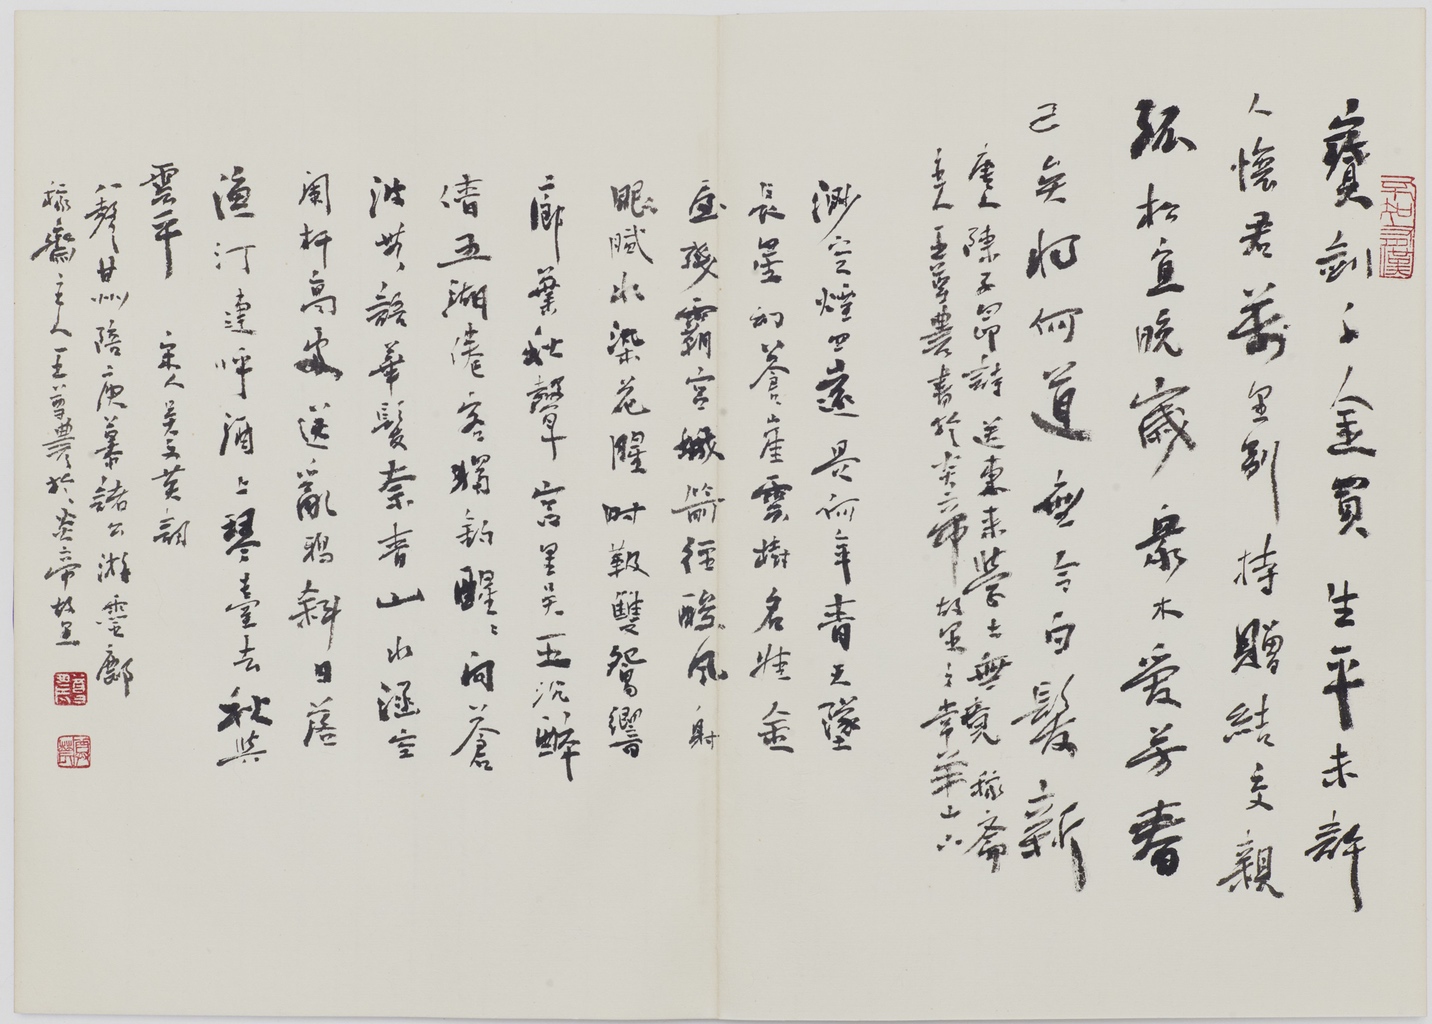 寶劍千金買生平未許
人懷君萬里別持贈結交親
孤松宜晚歲眾木愛芳春
已矣將何道無令白髮新
唐人陳子昂詩送東萊學士無競 稼齋
主人王尊農書於炎帝故里之常羊山下
渺空煙四遠是何年青天墜
長星幻蒼崖雲樹名娃金
屋殘霸宮城箭徑酸風射
眼膩水染花腥時靸雙鴛響
廊葉秋聲宮里吳王沉醉
倩五湖倦客獨釣醒醒問蒼
波無語華髮奈青山水涵空
闌杆高處送亂鴉斜日落
漁汀連呼酒上琴臺去秋與
雲平 宋人吳文英詞
八聲甘州陪庾幕諸公游靈
稼齋主人王尊農於炎帝故里